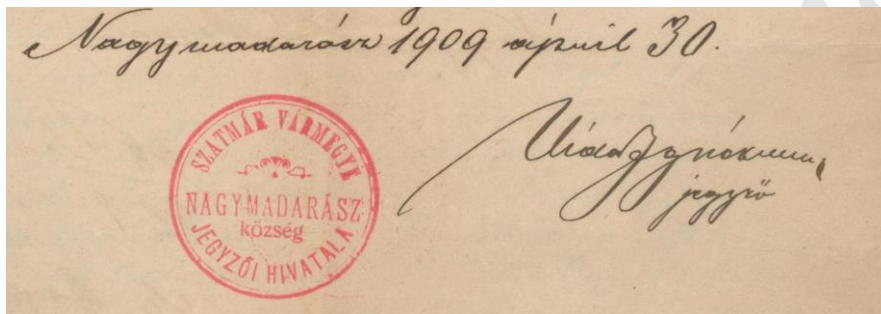 Nagymadarász 1909 április 30.
SZATMÁR VÁRMEGYE
NAGYMADARÁSZ
község
JEGYZŐI HIVATALA
jegyző